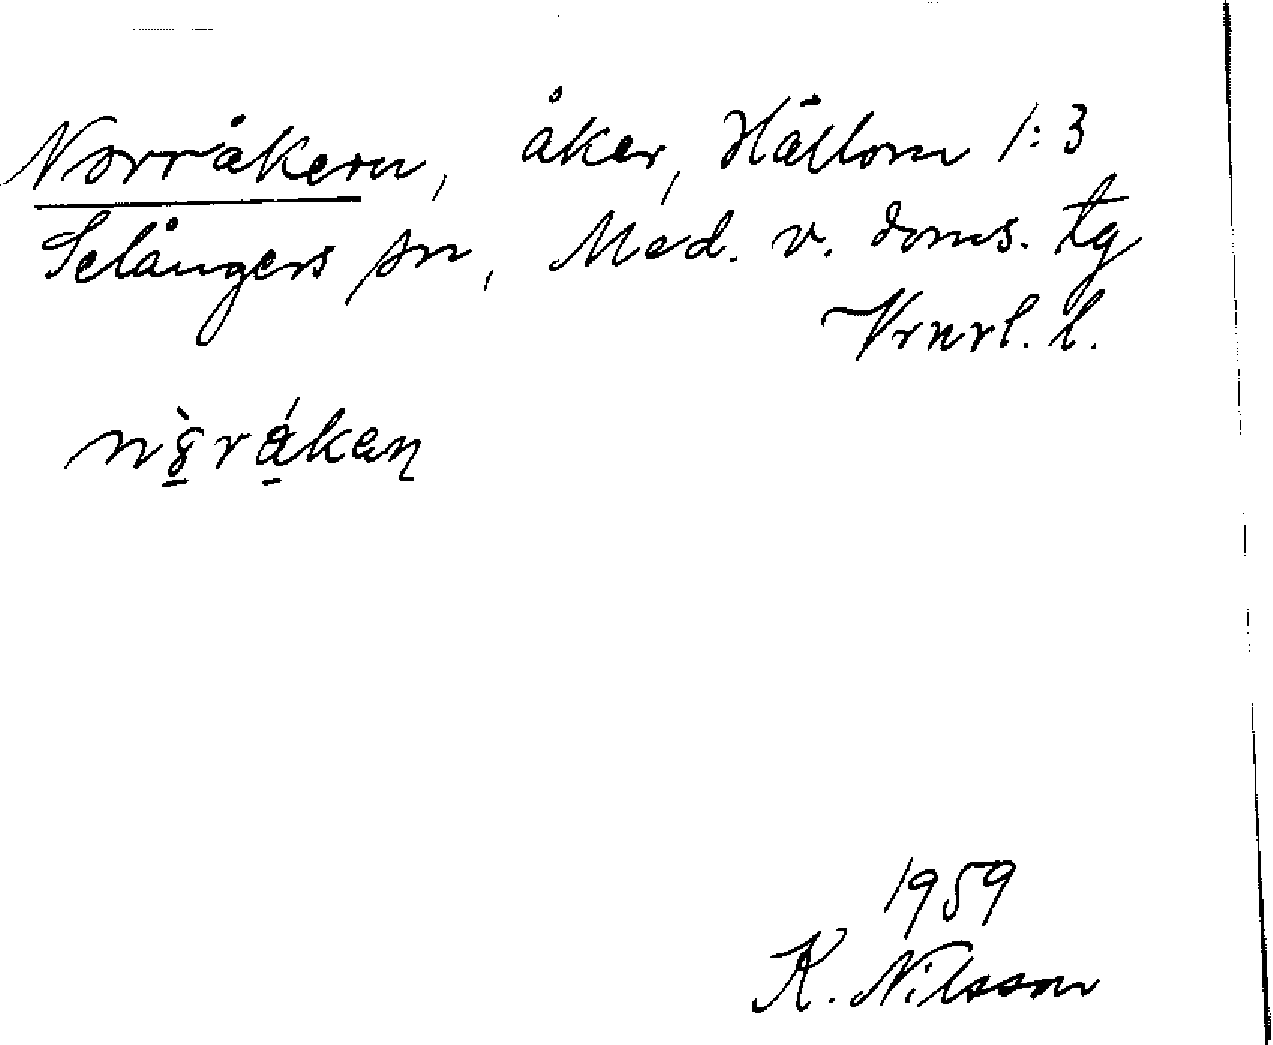 Norråkern, åker, Hållom 1:3
Selångers sn, Med. v. doms. tg
Vrnrl. l.
nòråkaɳ
1959
K. Nilsson